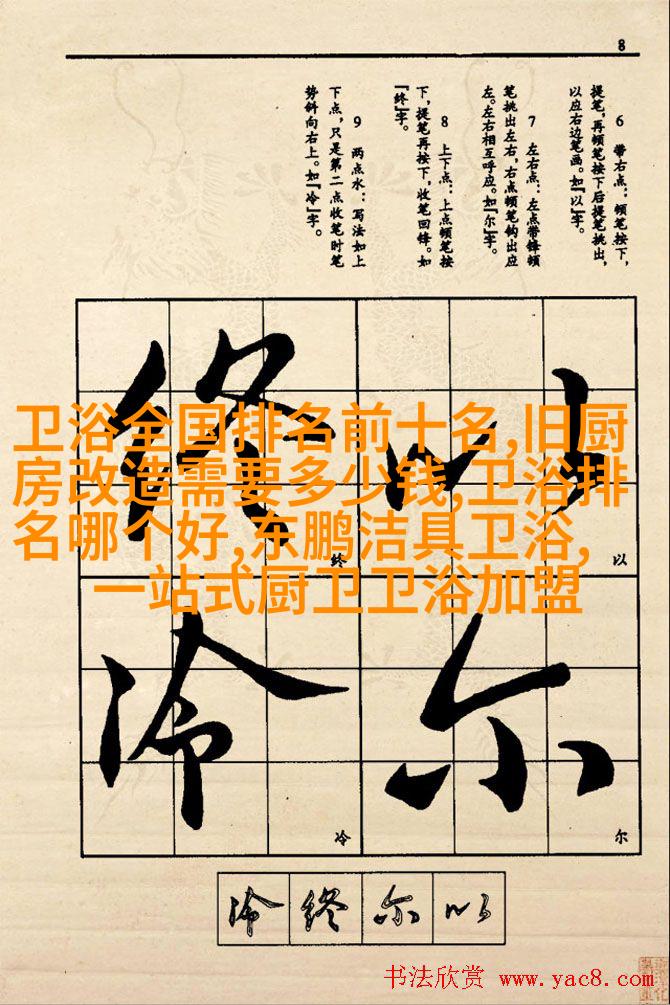 8
6 带右点：顿笔按下，
提笔，再顿笔按下后提笔挑出，
以应右边笔画。如『以』字。
7 左右点：左点带锋顿
笔挑出左右，右点顿笔钩出应
左。左右相互呼应。如『尔』字。
8 上下点：上点顿笔按
下，提笔再按下，收笔回锋。如
『终』字。
9 两点水：写法如上
下点，只是第二点收笔时笔
势斜向右上。如『冷』字。
以
以
终
终
尔
尔
冷
冷
卫浴全国排名前十名,旧厨
房改造需要多少钱,卫浴排
名哪个好,东鹏洁具卫浴,
一站式厨卫卫浴加盟
以尔终冷
书法欣赏 www.yac8.com